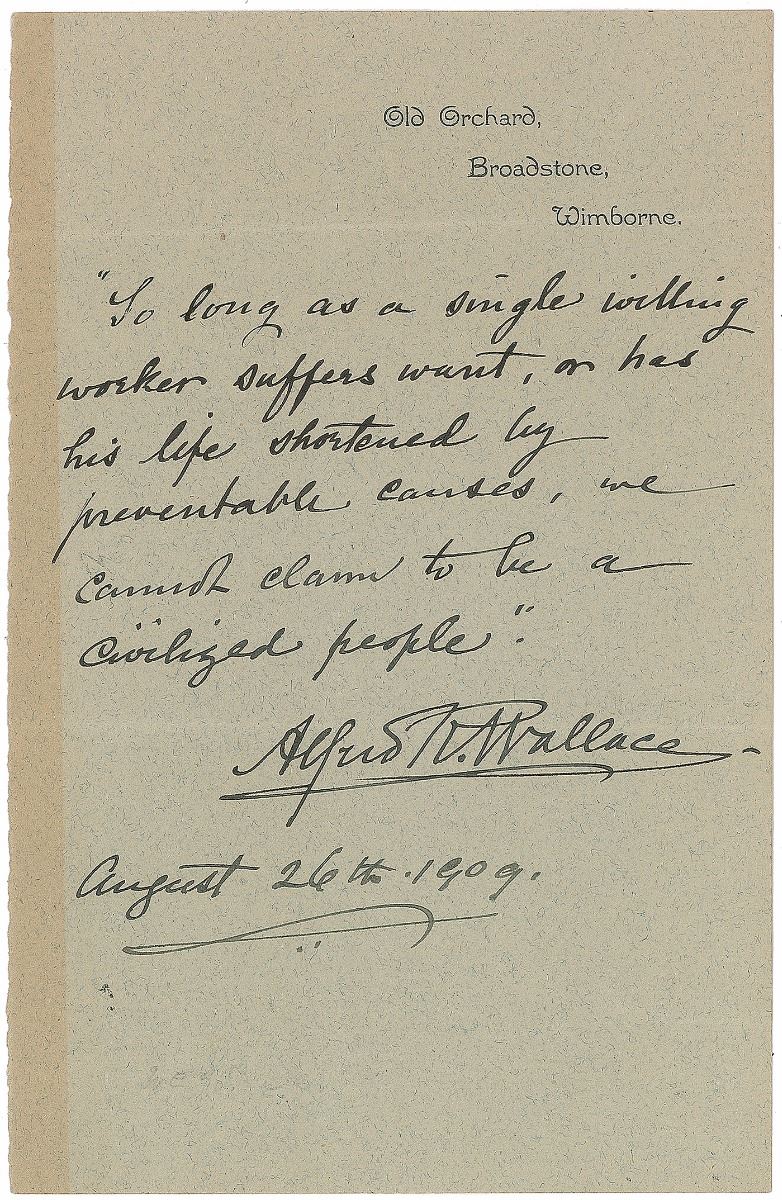 Old Orchard,
Broadstone,
Wimborne.
"So long as a single willing
worker suffers want, or has
his life shortened by
preventable causes, we
cannot claim to be a
civilized people".
Alfred R. Wallace
August 26th. 1909.